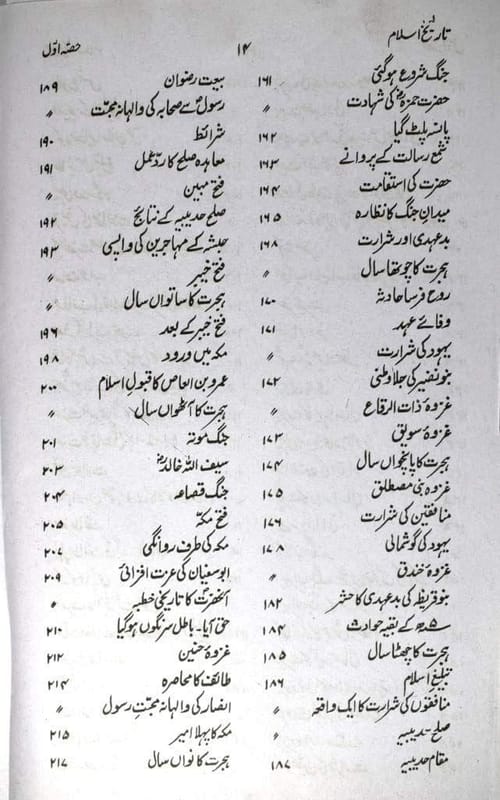 تاریخ اسلام
۱۴
حصہ اول
جنگ شروع ہوگئی ۱۶۱
حضرت حمزہؓ کی شہادت 〃
پانسہ پلٹ گیا ۱۶۲
شمع رسالت کے پروانے ۱۶۳
حضرت کی استقامت ۱۶۴
میدان جنگ کا نظارہ ۱۶۵
بدعہدی اور شرارت ۱۶۸
ہجرت کا چوتھا سال 〃
روح فرسا حادثہ ۱۷۰
وفائے عہد ۱۷۱
یہود کی شرارت 〃
بنو نضیر کی جلاوطنی ۱۷۲
غزوہ ذات الرقاع 〃
غزوہ سویق ۱۷۳
ہجرت کا پانچواں سال ۱۷۴
غزوہ بنی مصطلق ۱۷۵
منافقین کی شرارت ۱۷۶
یہود کی گوشمالی ۱۷۸
غزوہ خندق 〃
بنو قریظہ کی بدعہدی کا حشر ۱۸۲
۵ھ کے بقیہ حوادث ۱۸۴
ہجرت کا چھٹا سال ۱۸۵
تبلیغ اسلام ۱۸۶
منافقوں کی شرارت کا ایک واقعہ 〃
صلح حدیبیہ 〃
مقام حدیبیہ ۱۸۷
بیعت رضوان ۱۸۹
رسولؐ سے صحابہ کی والہانہ محبت 〃
شرائط ۱۹۰
معاہدہ صلح کا ردعمل ۱۹۱
فتح مبین 〃
صلح حدیبیہ کے نتائج ۱۹۲
حبشہ کے مہاجرین کی واپسی ۱۹۳
فتح خیبر 〃
ہجرت کا ساتواں سال 〃
فتح خیبر کے بعد ۱۹۶
مکہ میں ورود ۱۹۸
عمرو بن العاص کا قبول اسلام ۲۰۰
ہجرت کا آٹھواں سال 〃
جنگ موتہ ۲۰۱
سیف اللہ خالدؓ ۲۰۳
جنگ قصاعہ ۲۰۴
فتح مکہ ۲۰۵
مکہ کی طرف روانگی ۲۰۷
ابوسفیان کی عزت افزائی ۲۰۹
آنحضرتؐ کا تاریخی خطبہ 〃
حق آیا۔ باطل سرنگوں ہوگیا
غزوہ حنین ۲۱۲
طائف کا محاصرہ ۲۱۴
انصار کی والہانہ محبت رسول 〃
مکہ کا پہلا امیر ۲۱۵
ہجرت کا نواں سال ۲۱۷